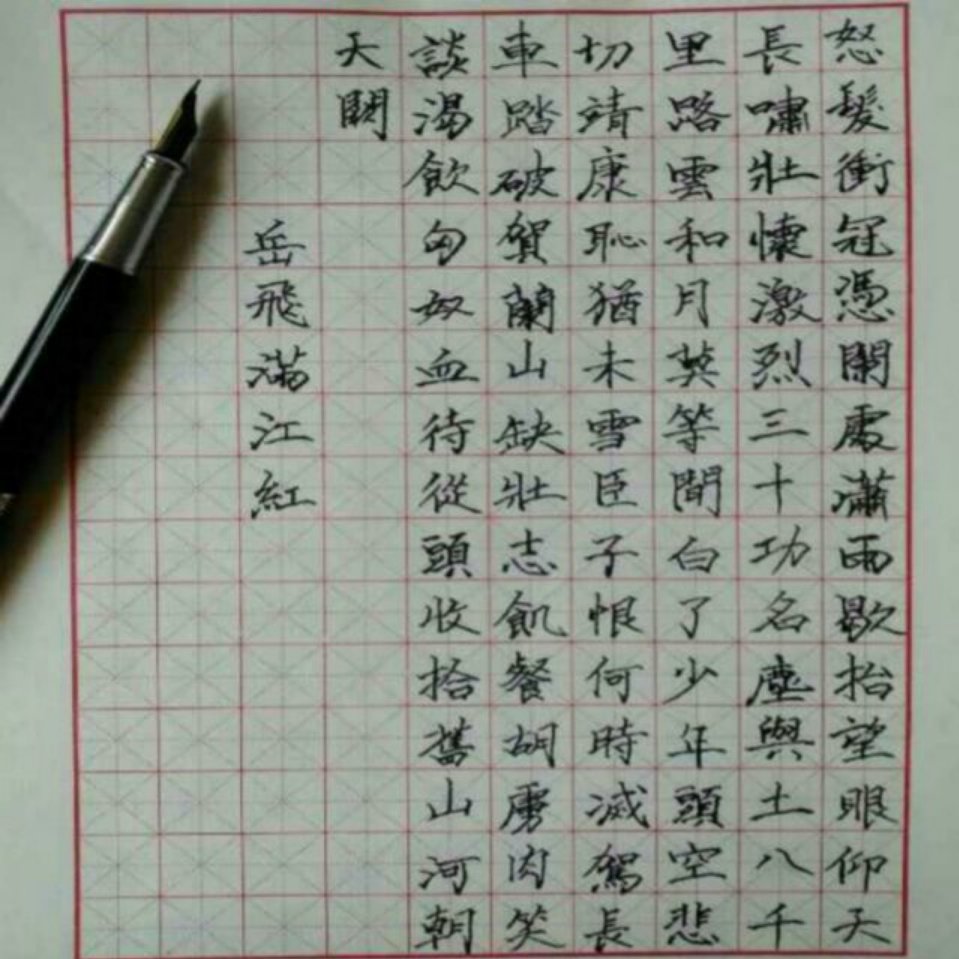 怒髮衝冠憑闌處瀟雨歇抬望眼仰天
長嘯壯懷激烈三十功名塵與土八千
里路雲和月莫等閒白了少年頭空悲
切靖康恥猶未雪臣子恨何時滅駕長
車踏破賀蘭山缺壯志飢餐胡虜肉笑
談渴飲匈奴血待從頭收拾舊山河朝
天闕
岳飛滿江紅